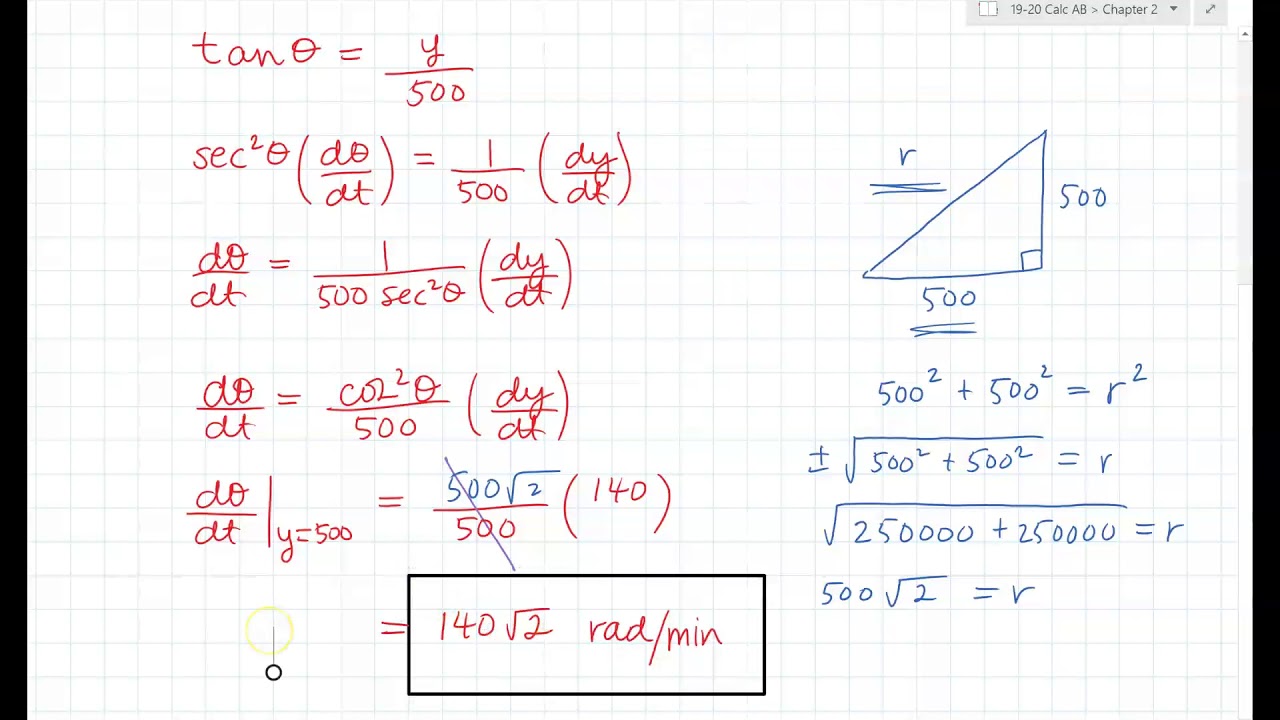 19-20 Calc AB > Chapter 2
tanθ = y/500
sec²θ (dθ/dt) = 1/500 (dy/dt)
dθ/dt = 1/(500 sec²θ) (dy/dt)
dθ/dt = cos²θ/500 (dy/dt)
dθ/dt |y=500 = 500√2/500 (140)
= 140√2 rad/min
r
500
500
500² + 500² = r²
±√(500² + 500²) = r
√(250000 + 250000) = r
500√2 = r